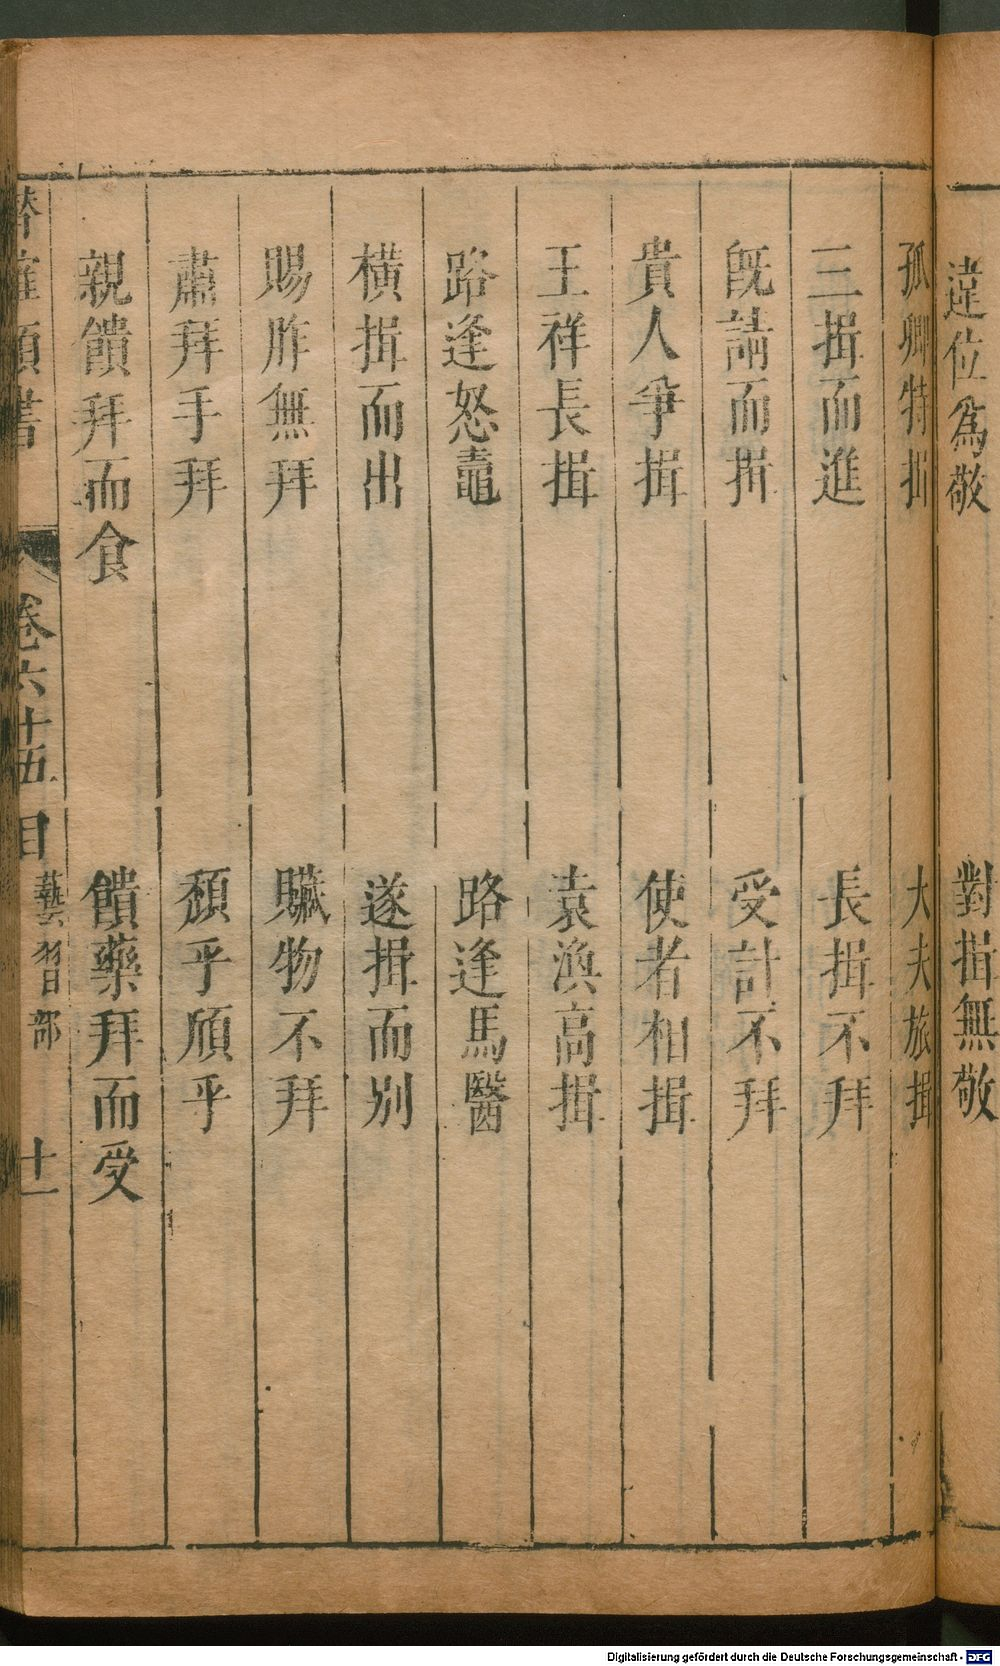 違位為敬 對揖無敬
孤卿特揖 大夫旅揖
三揖而進 長揖不拜
既請而揖 受計不拜
貴人爭揖 使者相揖
王祥長揖 袁渙高揖
路逢怒鼃 路逢馬醫
橫揖而出 遂揖而別
賜胙無拜 贓物不拜
肅拜手拜 頹乎頎乎
親饋拜而食 饋藥拜而受
類書 卷六十五 目 藝習部 十一
Digitalisierung gefördert durch die Deutsche Forschungsgemeinschaft - DFG